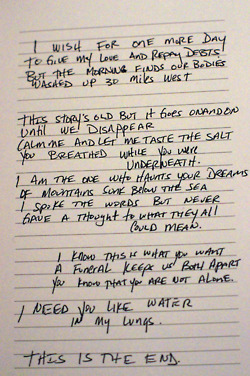 I WISH FOR ONE MORE DAY
TO GIVE MY LOVE AND REPAY DEBTS
BUT THE MORNING FINDS OUR BODIES
WASHED UP 30 MILES WEST
THIS STORY'S OLD BUT IT GOES ON AND ON
UNTIL WE DISAPPEAR
CALM ME AND LET ME TASTE THE SALT
YOU BREATHED WHILE YOU WERE
UNDERNEATH.
I AM THE ONE WHO HAUNTS YOUR DREAMS
OF MOUNTAINS SUNK BELOW THE SEA
I SPOKE THE WORDS BUT NEVER
GAVE A THOUGHT TO WHAT THEY ALL
COULD MEAN.
I KNOW THIS IS WHAT YOU WANT
A FUNERAL KEEPS US BOTH APART
YOU KNOW THAT YOU ARE NOT ALONE.
I NEED YOU LIKE WATER
IN MY LUNGS.
THIS IS THE END.